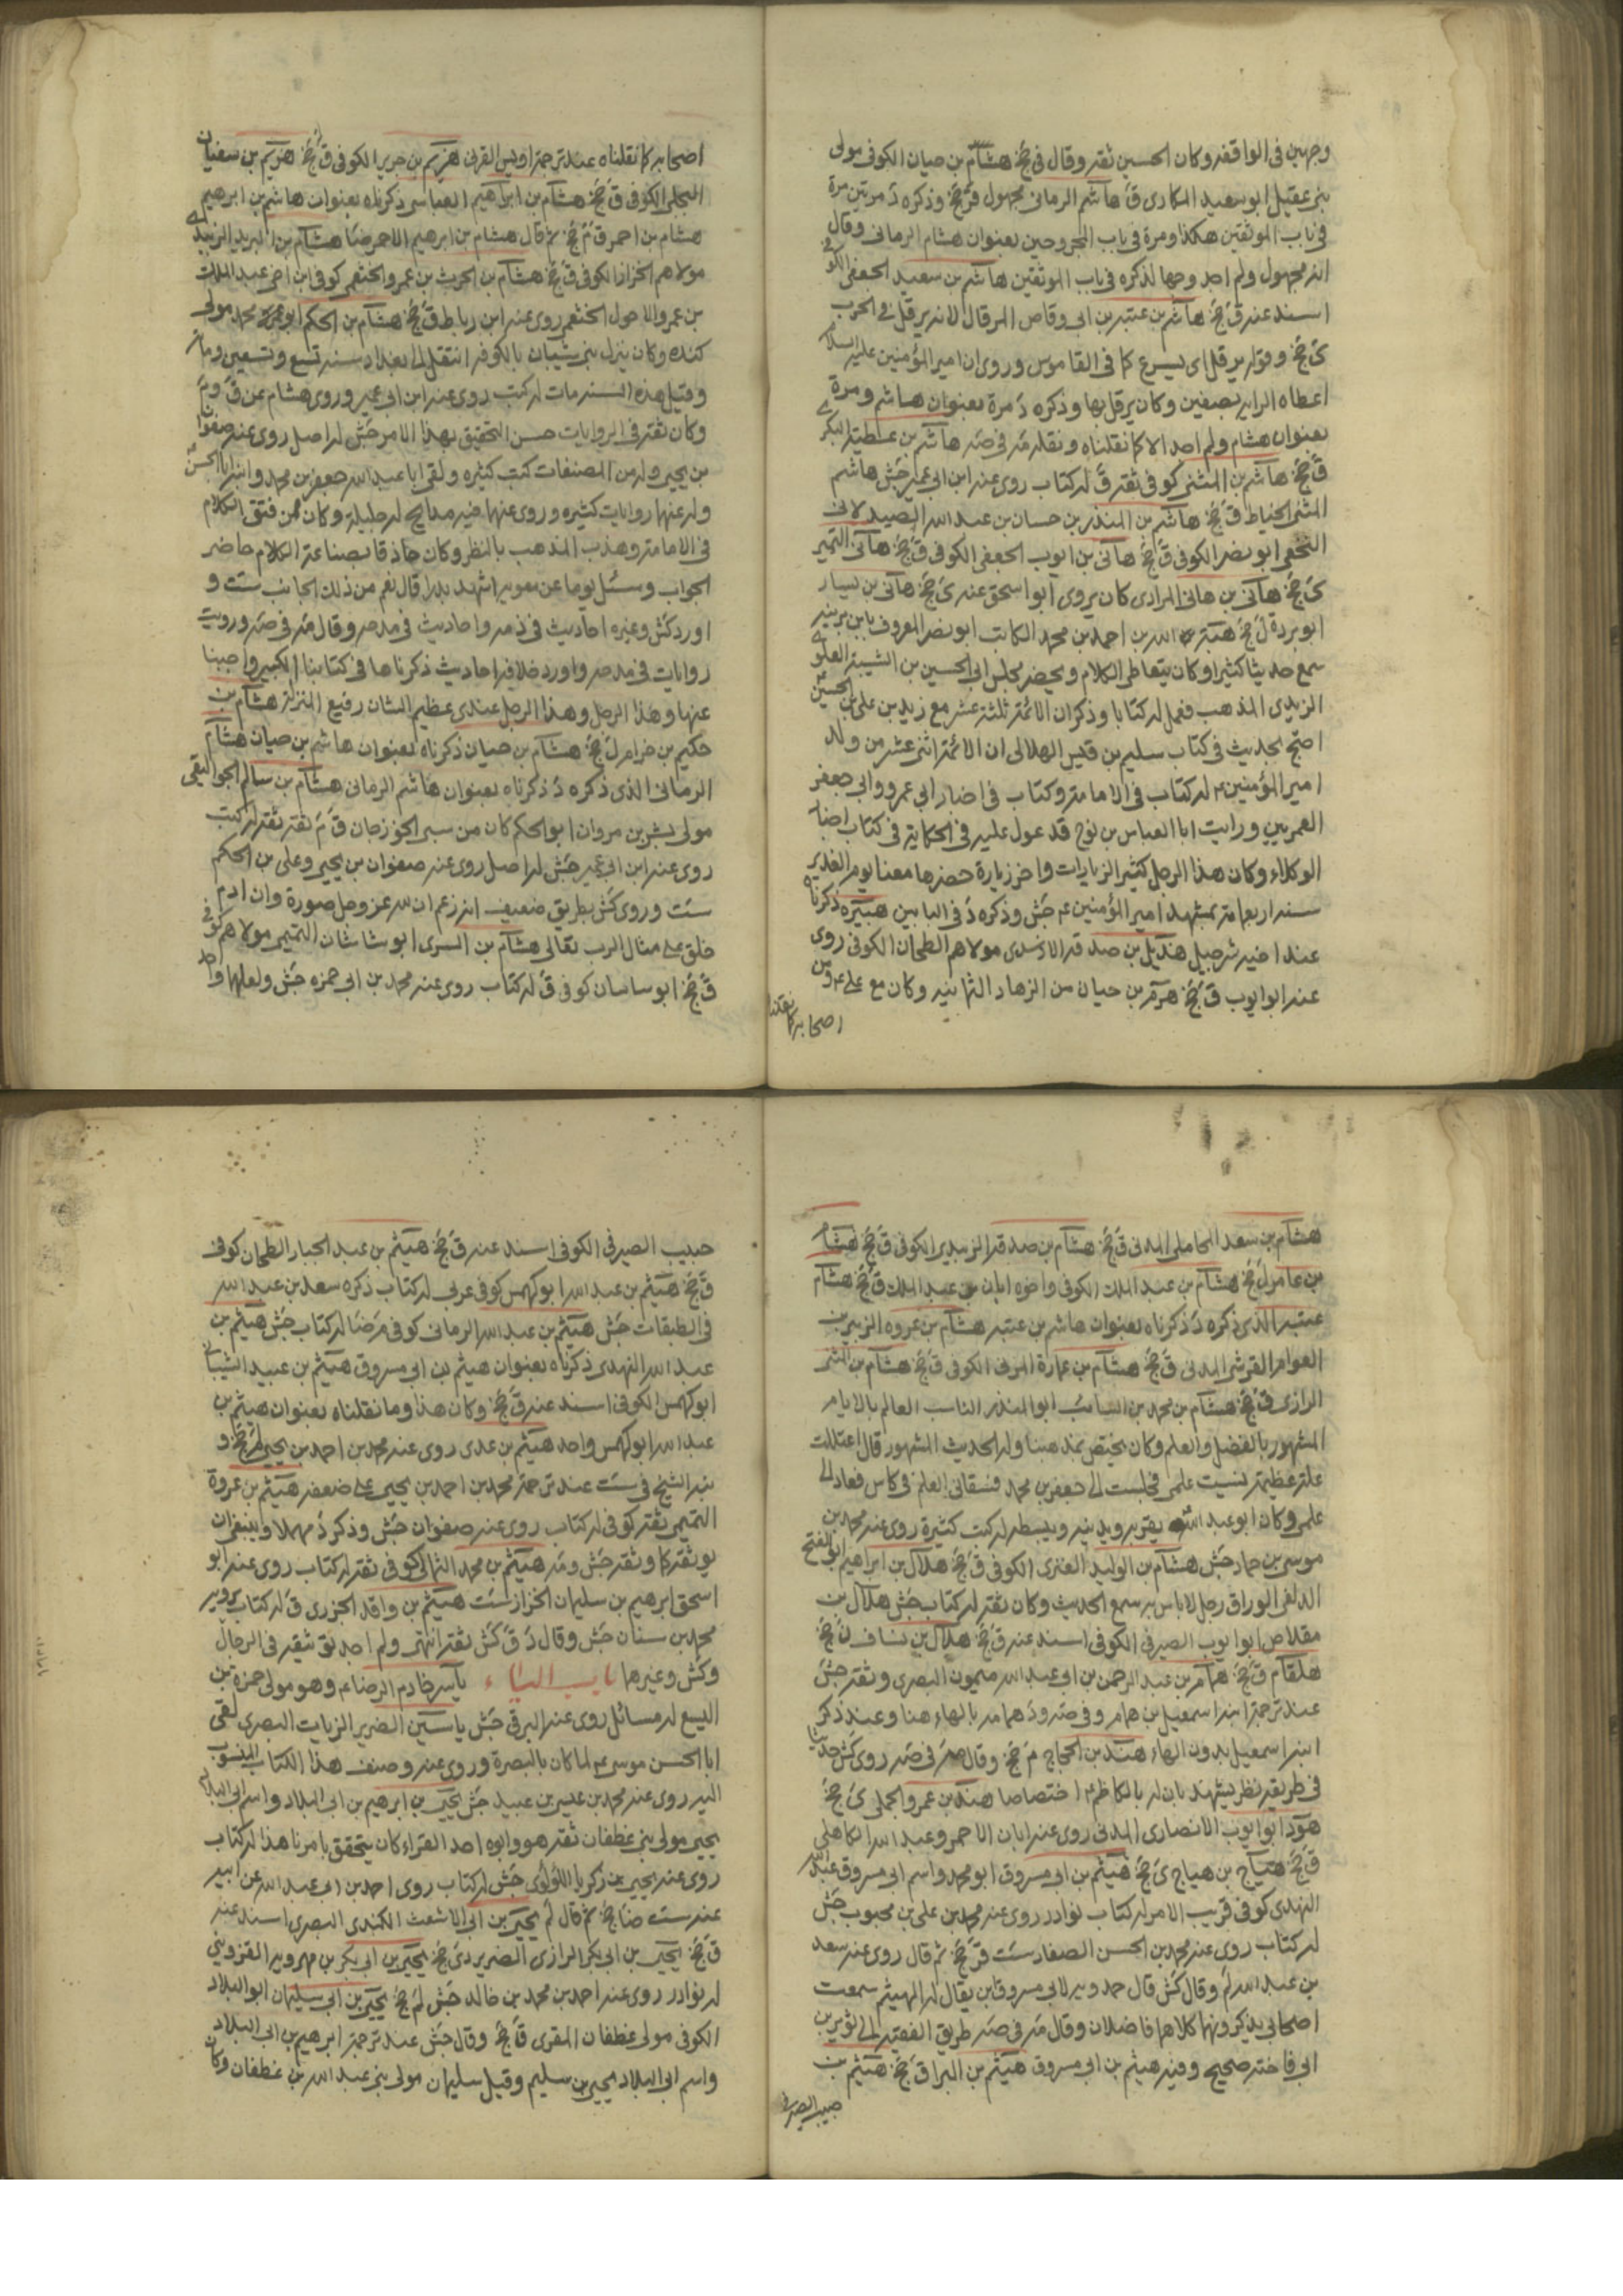 وجهين في الواقفه وكان الحسين ثقه وقال في جخ هشام بن حيان الكوفي مولى
بني عقيل ابو سعيد المكارى ق هاشم الرماني مجهول قر جخ وذكره د مرتين مرة
في باب الموثقين هكذا ومرة في باب المجروحين بعنوان هشام الرماني وقال
انه مجهول ولم اجد وجها لذكره في باب الموثقين هاشم بن سعيد الجعفي الكوفي
اسند عنه ق جخ هاشم بن عتبه بن ابي وقاص المرقال لانه يرقل في الحرب
ى جخ وقوله يرقل اى يسرع كما في القاموس وروى ان امير المؤمنين عليه السلام
اعطاه الرايه بصفين وكان يرقل بها وذكره د مرة بعنوان هاشم ومرة
بعنوان هشام ولم اجد الا كما نقلناه ونقله مه في صه هاشم بن عطيه
ق جخ هاشم بن المثنى كوفي ثقه ق له كتاب روى عنه ابن ابي عمير جش هاشم
المثنى الحناط ق جخ هاشم بن المنذر بن حسان بن عبد الله الصيد لاني
النخعي ابو نصر الكوفي ق جخ هاني بن ايوب الجعفي الكوفي ق جخ هاني التمير
ى جخ هاني بن هاني المرادى كان يروى ابو اسحق عنه ى جخ هاني بن نيار
ابو بردة ل جخ هبة الله بن احمد بن محمد الكاتب ابو نصر المعروف بابن برنيه
سمع حديثا كثيرا وكان يتعاطى الكلام ويحضر مجلس ابي الحسين بن الشيبه العلوى
الزيدى المذهب فعمل له كتابا وذكر ان الائمه ثلثة عشر مع زيد بن علي بن الحسين
احتج بحديث في كتاب سليم بن قيس الهلالي ان الائمة اثنى عشر من ولد
امير المؤمنين ع له كتاب في الامامة وكتاب في اخبار ابي عمرو وابي جعفر
العمريين ورايت ابا العباس بن نوح قد عول عليه في الحكاية في كتاب اخبار
الوكلاء وكان هذا الرجل كثير الزيارات واخر زيارة حضرها معنا يوم الغدير
سنه اربعمائه بمشهد امير المؤمنين ع جش وذكره د في البابين هبيره ذكرناه
عند اخيه شرحبيل هذيل بن صدقه الاسدى مولاهم الطحان الكوفي روى
عنه ابو ايوب ق جخ هرم بن حيان من الزهاد الثمانيه وكان مع علي ع ومن
اصحابه كما نقلناه
اصحابه كما نقلناه عند ترجمة اويس القرني هريم بن جرير الكوفي ق جخ هريم بن سفيان
البجلي الكوفي ق جخ هشام بن ابراهيم العباسي ذكرناه بعنوان هاشم بن ابرهيم
هشام بن احمر ق م جخ ثم قال هشام بن ابرهيم الاحمر ضا هشام بن البريد الزبيدى
مولاهم الخزاز الكوفي ق جخ هشام بن الحرث بن عمرو الخثعمي كوفي ابن اخي عبد الملك
بن عمرو الاحول الخثعمي روى عنه ابن رباط ق جخ هشام بن الحكم ابو محمد مولى
كنده وكان ينزل بني شيبان بالكوفه انتقل الى بغداد سنه تسع وتسعين ومائه
وقيل هذه السنه مات له كتب روى عنه ابن ابي عمير وروى هشام عن ق وم
وكان ثقه في الروايات حسن التحقيق بهذا الامر جش له اصل روى عنه صفوان
بن يحيى وله من المصنفات كتب كثيره ولقى ابا عبد الله جعفر بن محمد وابنه ابا الحسن
وله عنها روايات كثيره وروى عنهما فيه مدايح له جليله وكان ممن فتق الكلام
في الامامه وهذب المذهب بالنظر وكان حاذقا بصناعة الكلام حاضر
الجواب وسئل يوما عن معويه اشهد بدرا قال نعم من ذلك الجانب ست و
اورد كش وغيره احاديث في ذمه واحاديث في مدحه وقال مه في صه ورويت
روايات في مدحه واورد خلافه احاديث ذكرناها في كتابنا الكبير واجبنا
عنها وهذا الرجل وهذا الرجل عندى عظيم الشان رفيع المنزلة هشام بن
حكيم بن حزام ل جخ هشام بن حيان ذكرناه بعنوان هاشم بن حيان هشام
الرماني الذى ذكره د ذكرناه بعنوان هاشم الرماني هشام بن سالم الجواليقي
مولى بشر بن مروان ابو الحكم كان من سبى الجوزجان ق م ثقه ثقه له كتب
روى عنه ابن ابي عمير جش له اصل روى عنه صفوان بن يحيى وعلي بن الحكم
ست وروى كش بطريق ضعيف انه زعم ان لله عز وجل صورة وان ادم
خلق على مثال الرب تعالى هشام بن السرى ابو شاشان التميمي مولاهم كوفي
ق جخ ابو ساسان كوفي ق له كتاب روى عنه محمد بن ابي حمزه جش ولعلهما واحد
هشام بن سعد المحاملي المدني ق جخ هشام بن صدقه الزبيدى الكوفي ق جخ هشام
بن عامر ل جخ هشام بن عبد الملك الكوفي واخوه ابان بن عبد الملك ق جخ هشام
عتبه الذى ذكره د ذكرناه بعنوان هاشم بن عتبه هشام بن عروه الزبير بن
العوام القرشي المدني ق جخ هشام بن عمارة المزني الكوفي ق جخ هشام بن المثنى
الرازى ق جخ هشام بن محمد بن السائب ابو المنذر الناسب العالم بالايام
المشهور بالفضل والعلم وكان يختص بمذهبنا وله الحديث المشهور قال اعتللت
علة عظيمة نسيت علمي فجلست الى جعفر بن محمد فسقاني العلم في كاس فعاد الى
علمي وكان ابو عبد الله يقربه ويدنيه ويبسطه له كتب كثيرة روى عنه محمد بن
موسى بن حماد جش هشام بن الوليد العنزى الكوفي ق جخ هلال بن ابراهيم ابو الفتح
الدلفي الوراق رجل لا باس به سمع الحديث وكان ثقه له كتاب جش هلال بن
مقلاص ابو ايوب الصيرفي الكوفي اسند عنه ق جخ هلال بن نساف ن جخ
هلقام ق جخ همام بن عبد الرحمن بن ابي عبد الله ميمون البصرى وثقه جش
عند ترجمة ابنه اسمعيل بن همام وفي صه ود همام بالهاء هنا وعند ذكر
ابنه اسمعيل بدون الهاء هند بن الحجاج م جخ وقال مه في صه روى كش حديثا
في طريقه نظر يشهد بان له بالكاظم ع اختصاصا هند بن عمرو الجملي ى جخ
هود ابو ايوب الانصارى المدني روى عنه ابان الاحمر وعبد الله الكاهلي
ق جخ هياج بن هياج ى جخ هيثم بن ابي مسروق ابو محمد واسم ابي مسروق عبد الله
النهدى كوفي قريب الامر له كتاب نوادر روى عنه محمد بن علي بن محبوب جش
له كتاب روى عنه محمد بن الحسن الصفار ست قر جخ ثم قال روى عنه سعد
بن عبد الله لم وقال كش قال حمدويه لابي مسروق ابن يقال له الهيثم سمعت
اصحابي يذكرونهما كلاهما فاضلان وقال مه في صه طريق الفقيه الى ثوير بن
ابي فاخته صحيح وفيه هيثم بن ابي مسروق هيثم بن البرا ق جخ هيثم بن
حبيب الصيرفي
حبيب الصيرفي الكوفي اسند عنه ق جخ هيثم بن عبد الجبار الطحان كوفي
ق جخ هيثم بن عبد الله ابو كهمس كوفي عربي له كتاب ذكره سعد بن عبد الله
في الطبقات جش هيثم بن عبد الله الرماني كوفي م ضا له كتاب جش هيثم بن
عبد الله النهدى ذكرناه بعنوان هيثم بن ابي مسروق هيثم بن عبيد الشيباني
ابو كهمس الكوفي اسند عنه ق جخ وكان هذا وما نقلناه بعنوان هيثم بن
عبد الله ابو كهمس واحد هيثم بن عدى روى عنه محمد بن احمد بن يحيى لم جخ و
نبه الشيخ في ست عند ترجمة محمد بن احمد بن يحيى على ضعفه هيثم بن عروة
التميمي ثقه كوفي له كتاب روى عنه صفوان جش وذكر د مهملا وينبغي ان
يوثقه كما وثقه جش ومه هيثم بن محمد الثمالي كوفي ثقه له كتاب روى عنه ابو
اسحق ابرهيم بن سليمان الخزاز ست هيثم بن واقد الجزرى ق له كتاب يرويه
محمد بن سنان جش وقال د ق كش ثقه انتهى ولم اجد توثيقه في الرجال
وكش وغيرها باب الياء ياسر خادم الرضا ع وهو مولى حمزة بن
اليسع له مسائل روى عنه البرقي جش ياسين الضرير الزيات البصرى لقى
ابا الحسن موسى ع لما كان بالبصرة وروى عنه وصنف هذا الكتاب المنسوب
اليه روى عنه محمد بن عيسى بن عبيد جش يحيى بن ابرهيم بن ابي البلاد واسم ابي البلاد
يحيى مولى بني غطفان ثقه هو وابوه احد القراء كان يتحقق بامرنا هذا له كتاب
روى عنه يحيى بن زكريا اللؤلؤى جش له كتاب روى احمد بن ابي عبد الله عن ابيه
عنه ست ضا جخ ثم قال لم يحيى بن ابي الاشعث الكندى البصرى اسند عنه
ق جخ يحيى بن ابي بكر الرازى الضرير دى جخ يحيى بن ابي بكر بن مهرويه القزويني
له نوادر روى عنه احمد بن محمد بن خالد جش لم جخ يحيى بن ابي سليمان ابو البلاد
الكوفي مولى غطفان المقرى ق جخ وقال جش عند ترجمة ابرهيم بن ابي البلاد
واسم ابي البلاد يحيى بن سليم وقيل سليمان مولى بني عبد الله بن غطفان وكان